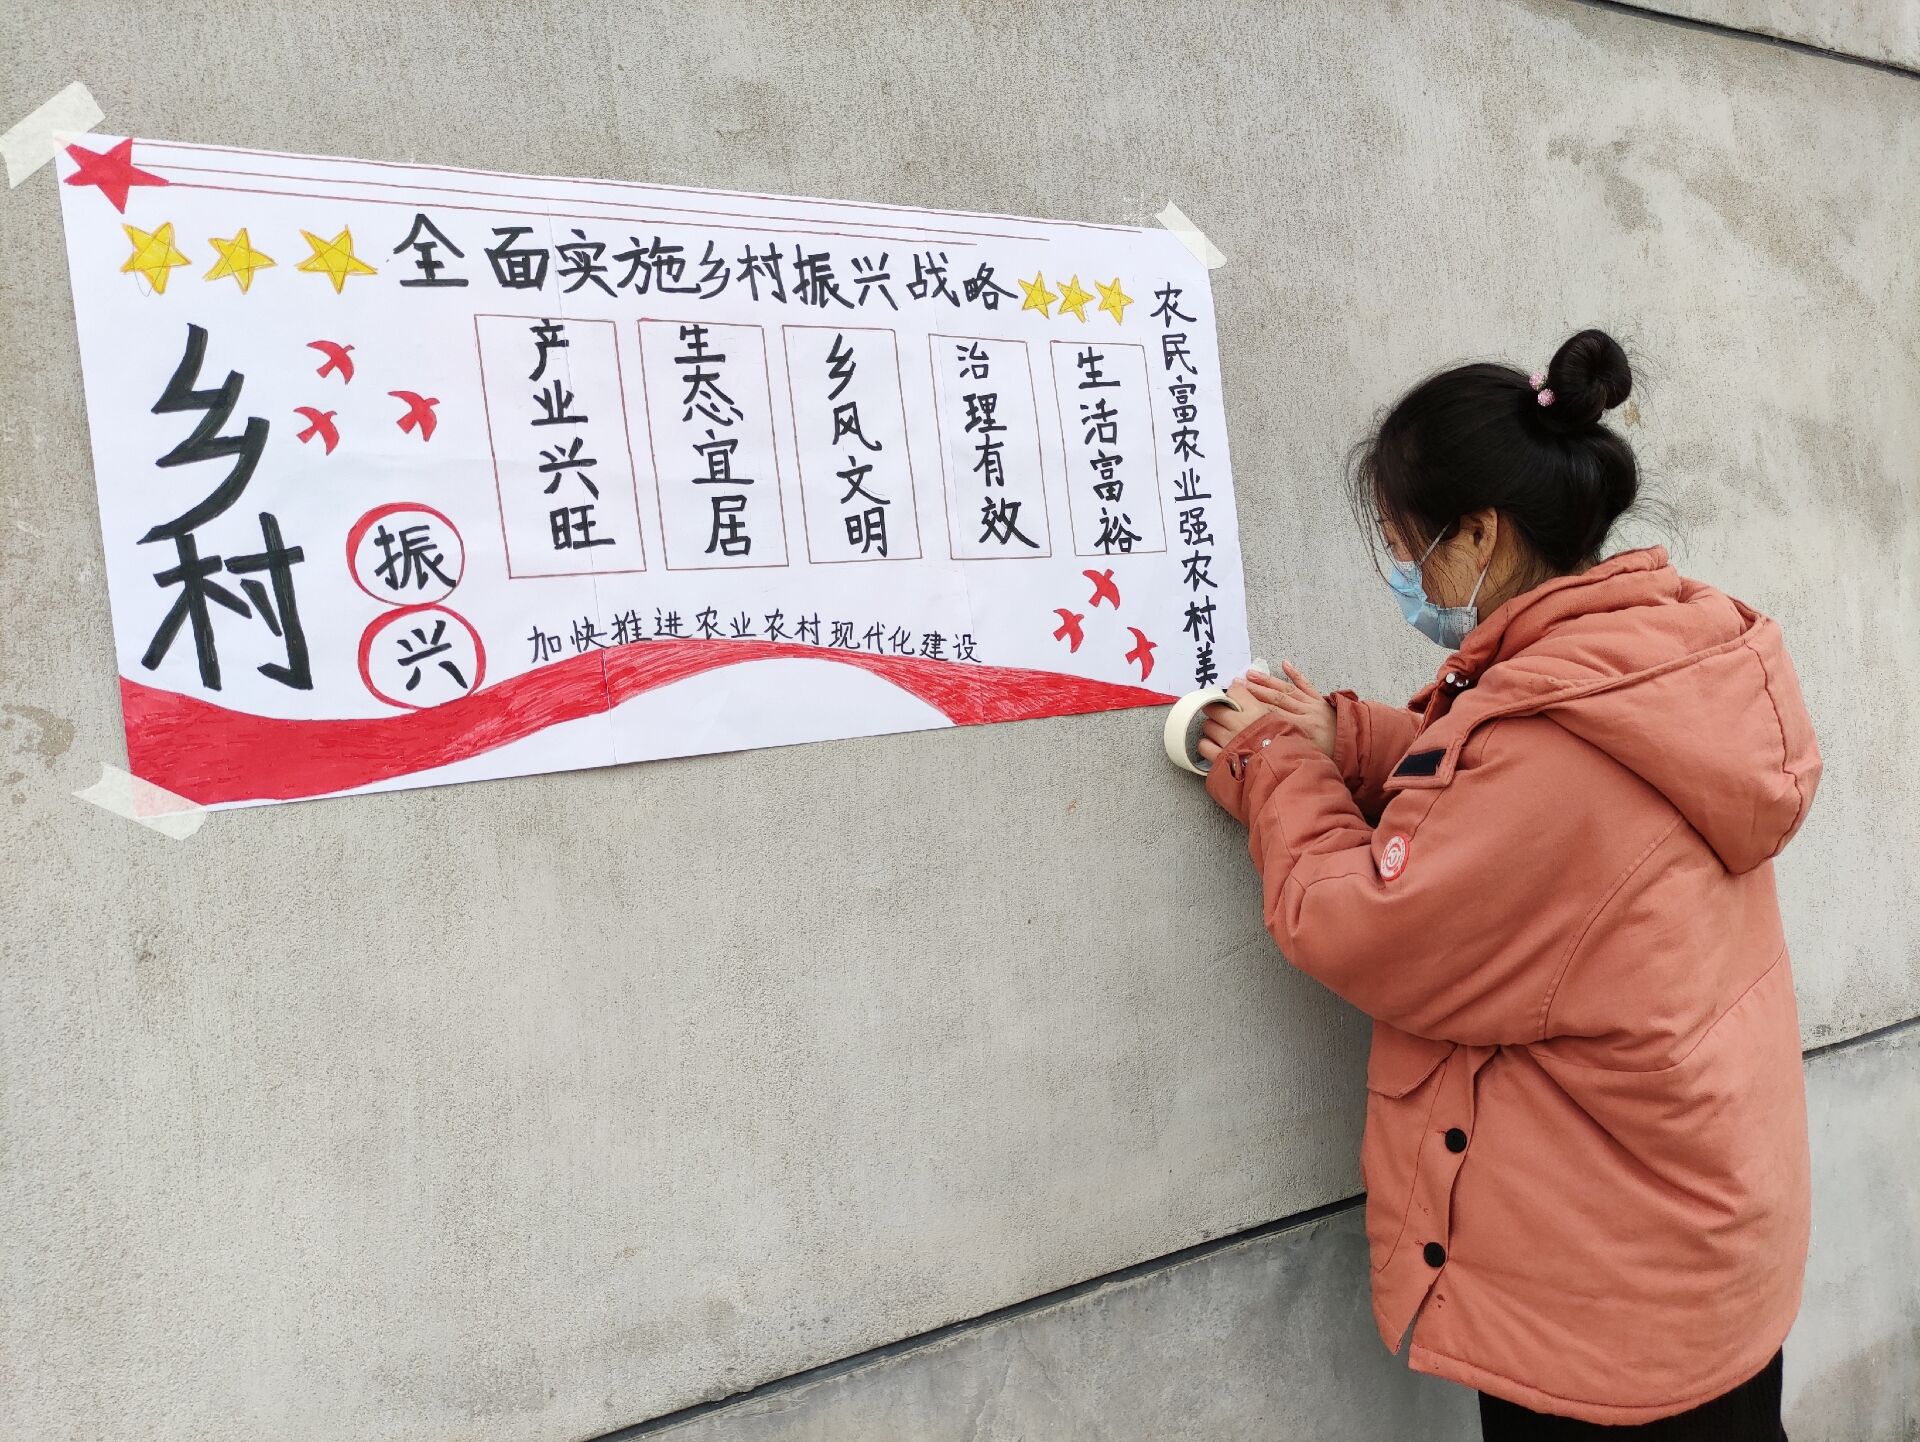 全面实施乡村振兴战略
乡村
振兴
产业兴旺
生态宜居
乡风文明
治理有效
生活富裕
农民富农业强农村美
加快推进农业农村现代化建设